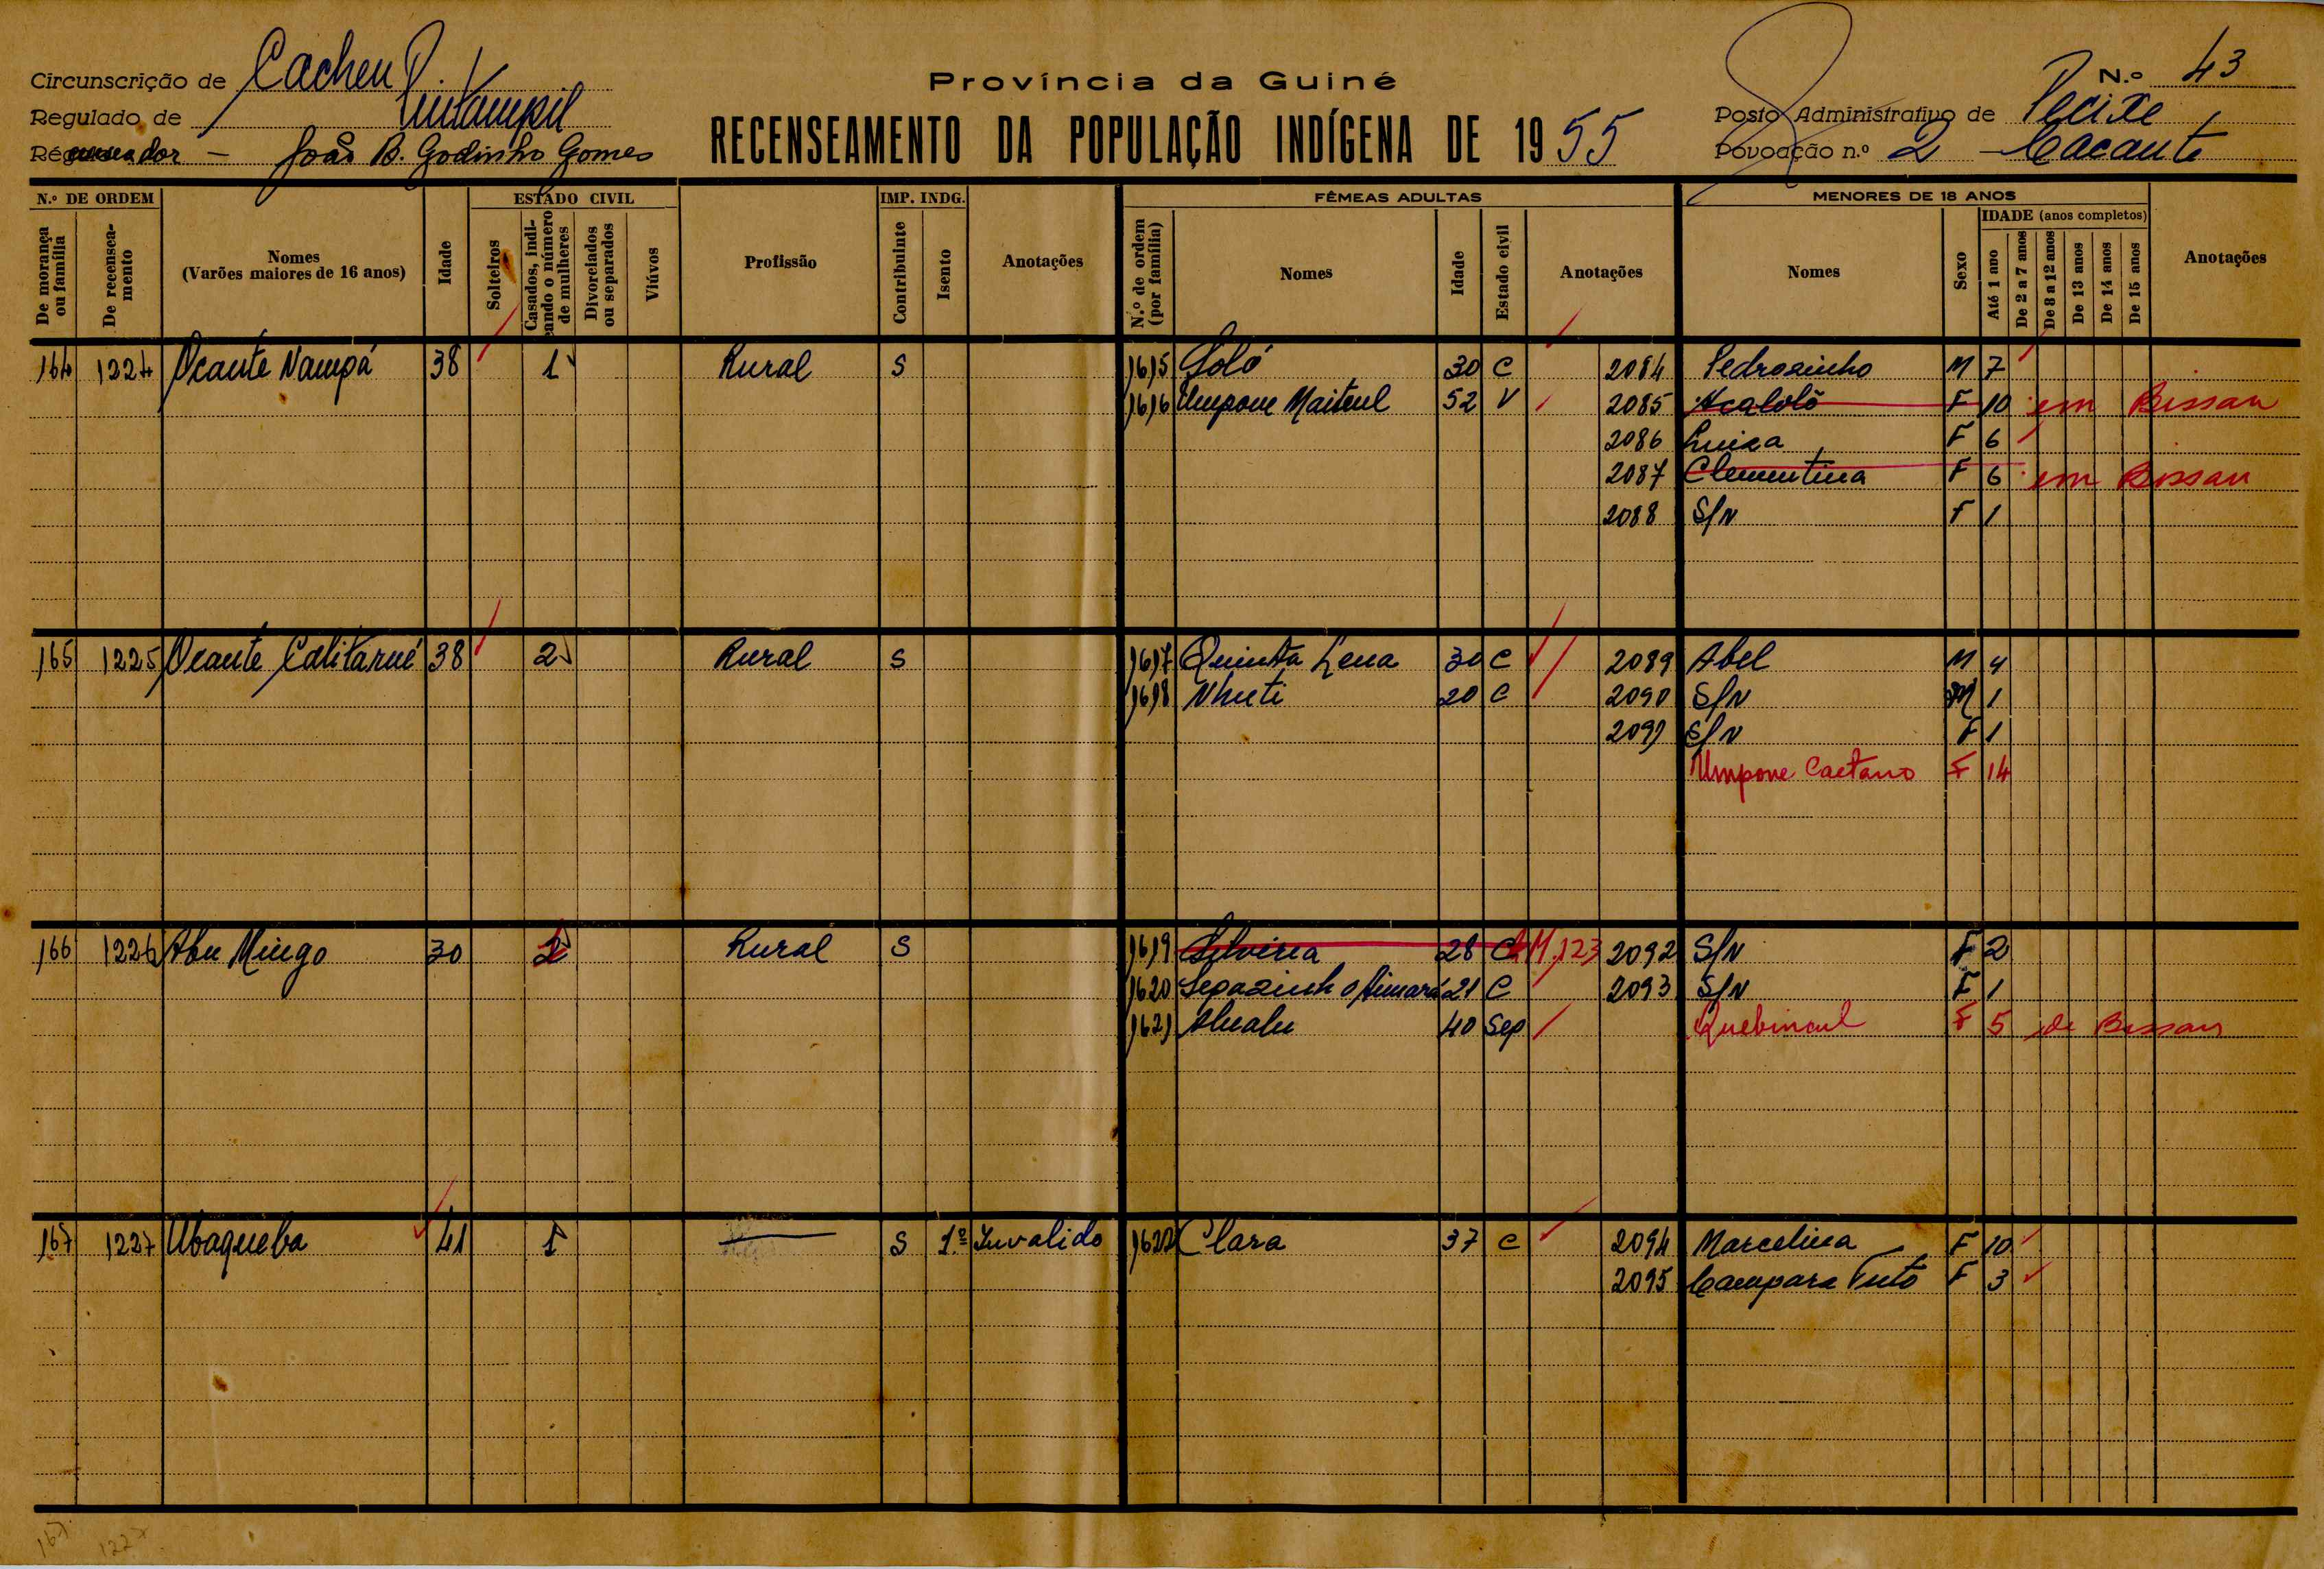 Província da Guiné
RECENSEAMENTO DA POPULAÇÃO INDÍGENA DE 1955
Circunscrição de Cacheu
Regulado de
João B. Godinho Gomes
N.º 43
Posto Administrativo de Pecixe
Povoação n.º 2 - Cacante
N.º DE ORDEM
De morança ou família
De recenseamento
Nomes
(Varões maiores de 16 anos)
Idade
ESTADO CIVIL
Solteiros
Casados, indicando o número de mulheres
Divorciados ou separados
Viúvos
Profissão
IMP. INDG.
Contribuinte
Isento
Anotações
FÊMEAS ADULTAS
N.º de ordem (por família)
Nomes
Idade
Estado civil
Anotações
MENORES DE 18 ANOS
Nomes
Sexo
IDADE (anos completos)
Até 1 ano
De 2 a 7 anos
De 8 a 12 anos
De 13 anos
De 14 anos
De 15 anos
Anotações
164 1224 Ocante Nampá 38 1 Rural S 1615 Soló 30 C 2084 Pedrozinho M 7
1616 Umpone Maiteul 52 V 2085 Acaloló F 10 em Bissau
2086 Luiza F 6
2087 Clementina F 6 em Bissau
2088 S/N F 1
165 1225 Ocante Calitarué 38 2 Rural S 1617 Quinta Lena 30 C 2089 Abel M 4
1618 Nhuti 20 C 2090 S/N M 1
2091 S/N F 1
Umpone Caetano F 14
166 1226 Abu Mingo 30 2 Rural S 1619 Silvéria 28 C M.123 2092 S/N F 2
1620 21 C 2093 S/N F 1
1621 40 Sep F 5 de Bissau
167 1227 Ubaqueba 41 1 S 1.º Invalido 1622 Clara 37 C 2094 Marcelina F 10
2095 Campara Tutó F 3
167 1227